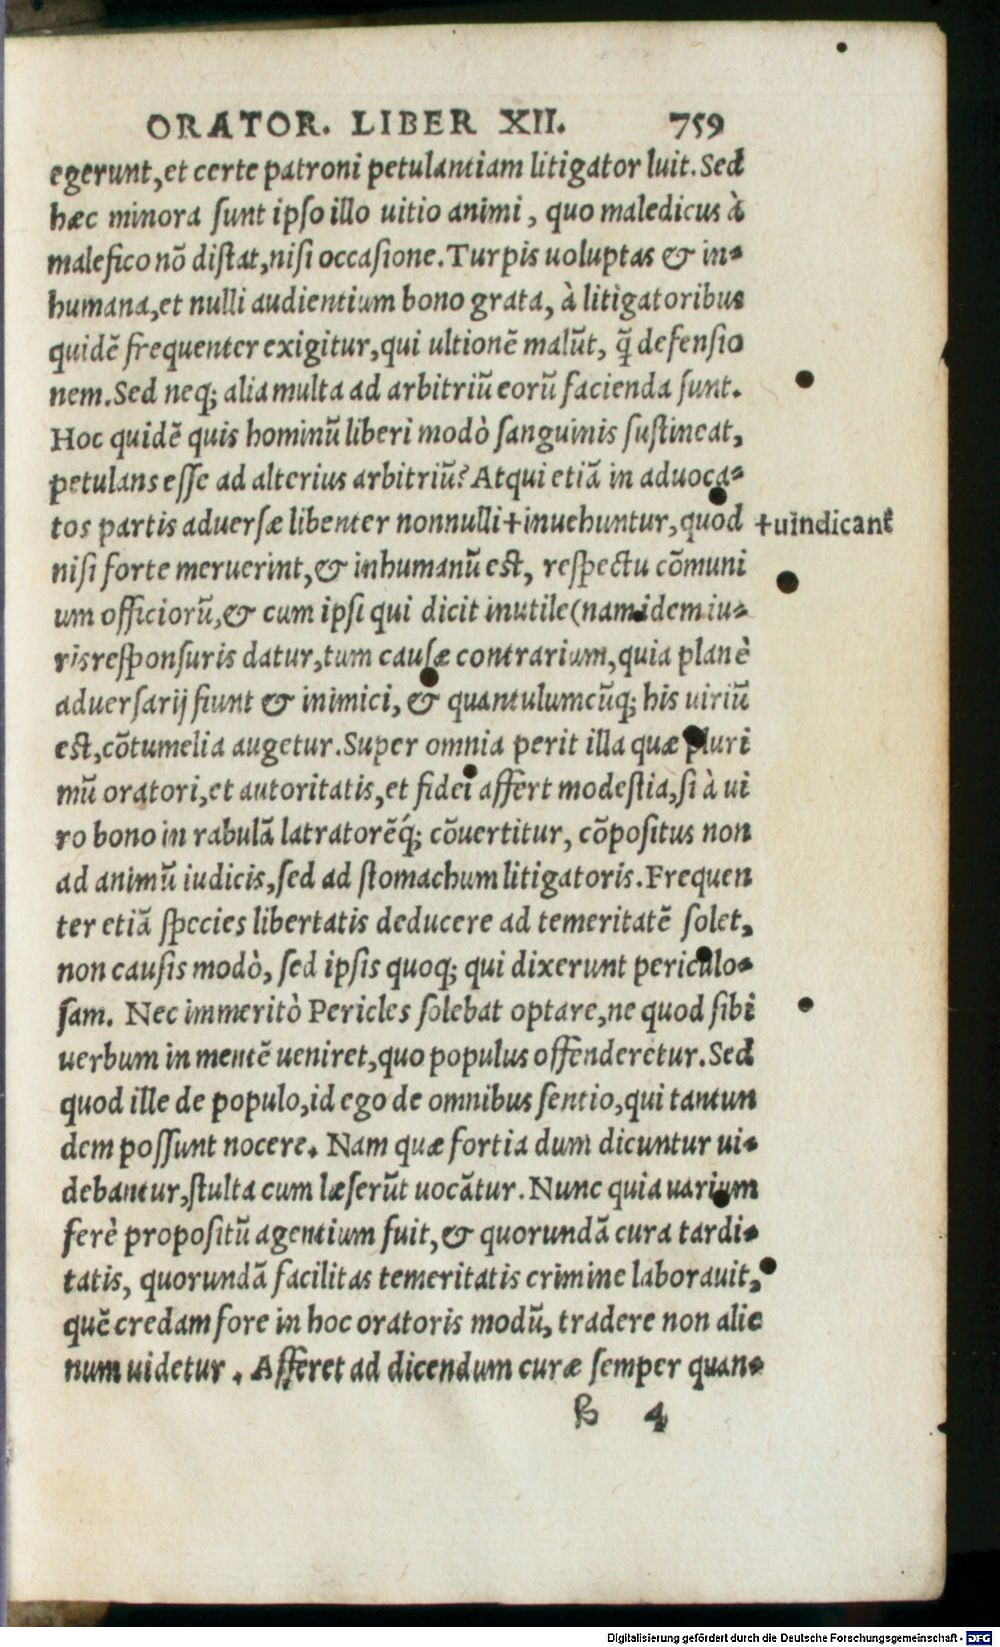 ORATOR. LIBER XII. 759
egerunt,et certe patroni petulantiam litigator luit. Sed
hæc minora ſunt ipſo illo uitio animi, quo maledicus à
malefico nō diſtat,niſi occaſione. Turpis uoluptas & in-
humana,et nulli audientium bono grata, à litigatoribus
quidē frequenter exigitur,qui ultionē malūt, q̃ defenſio
nem. Sed neq; alia multa ad arbitriū eorū facienda ſunt.
Hoc quidē quis hominū liberi modò ſanguinis ſuſtineat,
petulans eſſe ad alterius arbitriū? Atqui etiā in aduoca-
tos partis aduerſæ libenter nonnulli+inuehuntur,quod
+uindicant
niſi forte meruerint,& inhumanū eſt, reſpectu cōmuni
um officiorū,& cum ipſi qui dicit inutile(nam idem iu-
ris reſponſuris datur,tum cauſæ contrarium,quia planè
aduerſarij fiunt & inimici, & quantulumcūq; his uiriū
eſt,cōtumelia augetur. Super omnia perit illa quæ pluri
mū oratori,et autoritatis,et fidei affert modeſtia,ſi à ui
ro bono in rabulā latratorēq́; cōuertitur, cōpoſitus non
ad animū iudicis,ſed ad ſtomachum litigatoris. Frequen
ter etiā ſpecies libertatis deducere ad temeritatē ſolet,
non cauſis modò, ſed ipſis quoq; qui dixerunt periculo-
ſam. Nec immeritò Pericles ſolebat optare,ne quod ſibi
uerbum in mentē ueniret,quo populus offenderetur. Sed
quod ille de populo,id ego de omnibus ſentio,qui tantun
dem poſſunt nocere. Nam quæ fortia dum dicuntur ui-
debantur,ſtulta cum læſerūt uocātur. Nunc quia uarium
ferè propoſitū agentium fuit,& quorundā cura tardi-
tatis, quorundā facilitas temeritatis crimine laborauit,
quē credam fore in hoc oratoris modū, tradere non alie
num uidetur. Afferet ad dicendum curæ ſemper quan-
B 4
Digitalisierung gefördert durch die Deutsche Forschungsgemeinschaft - DFG